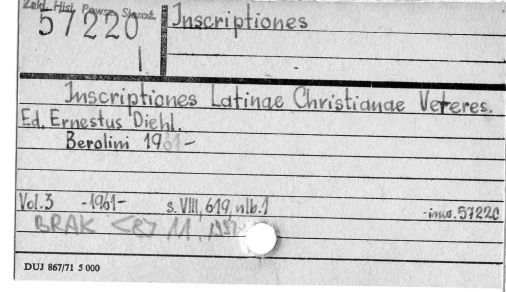 Zakł. Hist. Powsz. Staroż.
57220
I
Inscriptiones
Inscriptiones Latinae Christianae Veteres.
Ed. Ernestus Diehl.
Berolini 1961-
Vol. 3 -1961- s. VIII, 619, nlb. 1 -inw. 57220
BRAK
DUJ 867/71 5 000